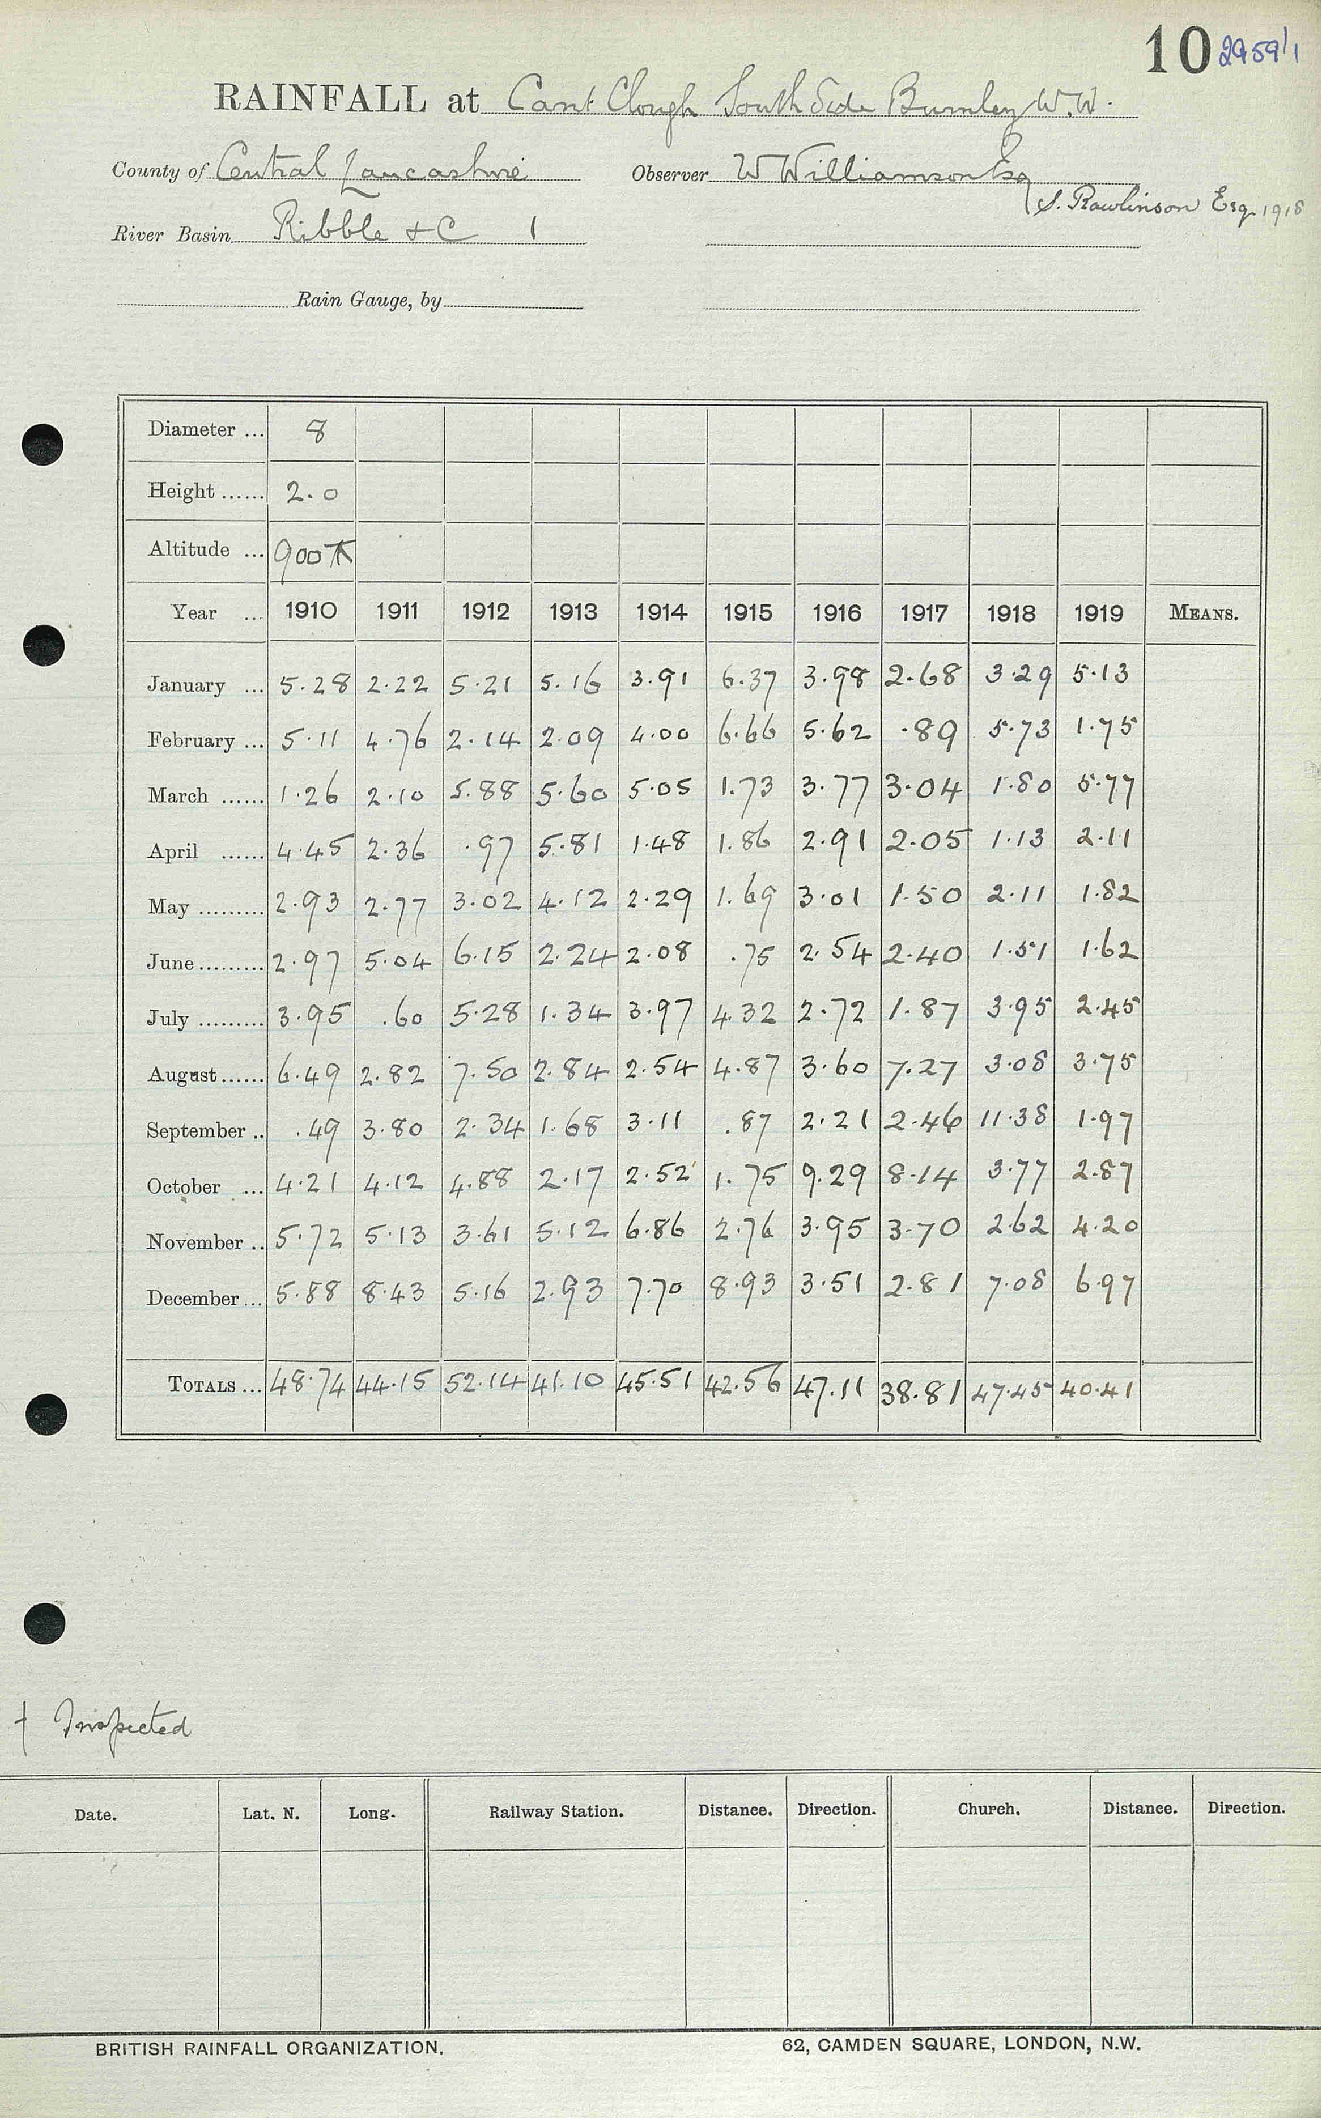 10 2959/1
RAINFALL at Cant Clough South Side Burnley W.W.
County of Central Lancashire Observer W Williamson Esq
S. Rawlinson Esq. 1918
River Basin Ribble &c 1
Rain Gauge, by
Diameter ... 8
Height ...... 2.0
Altitude ... 900
Year ... 1910 1911 1912 1913 1914 1915 1916 1917 1918 1919 MEANS.
January ... 5.28 2.22 5.21 5.16 3.91 6.37 3.98 2.68 3.29 5.13
February ... 5.11 4.76 2.14 2.09 4.00 6.66 5.62 .89 5.73 1.75
March ...... 1.26 2.10 5.88 5.60 5.05 1.73 3.77 3.04 1.80 5.77
April ...... 4.45 2.36 .97 5.81 1.48 1.86 2.91 2.05 1.13 2.11
May ......... 2.93 2.77 3.02 4.12 2.29 1.69 3.01 1.50 2.11 1.82
June ......... 2.97 5.04 6.15 2.24 2.08 .75 2.54 2.40 1.51 1.62
July ......... 3.95 .60 5.28 1.34 3.97 4.32 2.72 1.87 3.95 2.45
August ...... 6.49 2.82 7.50 2.84 2.54 4.87 3.60 7.27 3.08 3.75
September .. .49 3.80 2.34 1.68 3.11 .87 2.21 2.46 11.38 1.97
October ... 4.21 4.12 4.88 2.17 2.52 1.75 9.29 8.14 3.77 2.87
November .. 5.72 5.13 3.61 5.12 6.86 2.76 3.95 3.70 2.62 4.20
December ... 5.88 8.43 5.16 2.93 7.70 8.93 3.51 2.81 7.08 6.97
TOTALS ... 48.74 44.15 52.14 41.10 45.51 42.56 47.11 38.81 47.45 40.41
† Inspected
Date. Lat. N. Long. Railway Station. Distance. Direction. Church. Distance. Direction.
BRITISH RAINFALL ORGANIZATION. 62, CAMDEN SQUARE, LONDON, N.W.